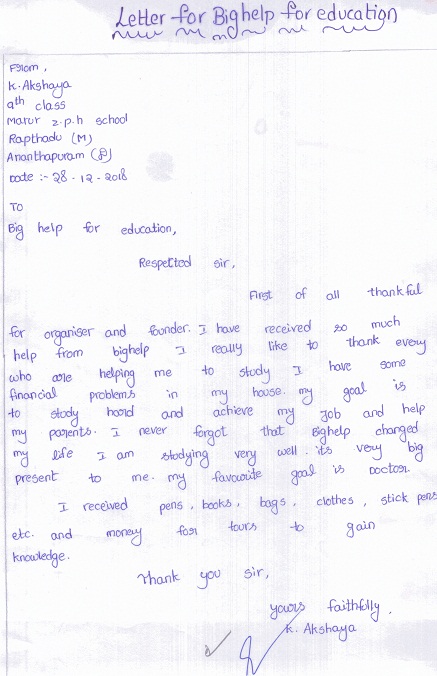 Letter for Big help for education
From,
K. Akshaya
9th class
Marur z.p.h school
Rapthadu (M)
Ananthapuram (D)
Date :- 28-12-2018
TO
Big help for education,
Respected sir,
First of all thankful
for organiser and founder. I have received so much
help from bighelp I really like to thank every
who are helping me to study I have some
financial problems in my house. my goal is
to study hard and achieve my Job and help
my parents. I never forgot that Bighelp changed
my life I am studying very well. its very big
present to me. my favourite goal is Doctor.
I received pens, books, bags, clothes, stick pens
etc. and money for tours to gain
knowledge.
Thank you sir,
yours faithfully,
K. Akshaya